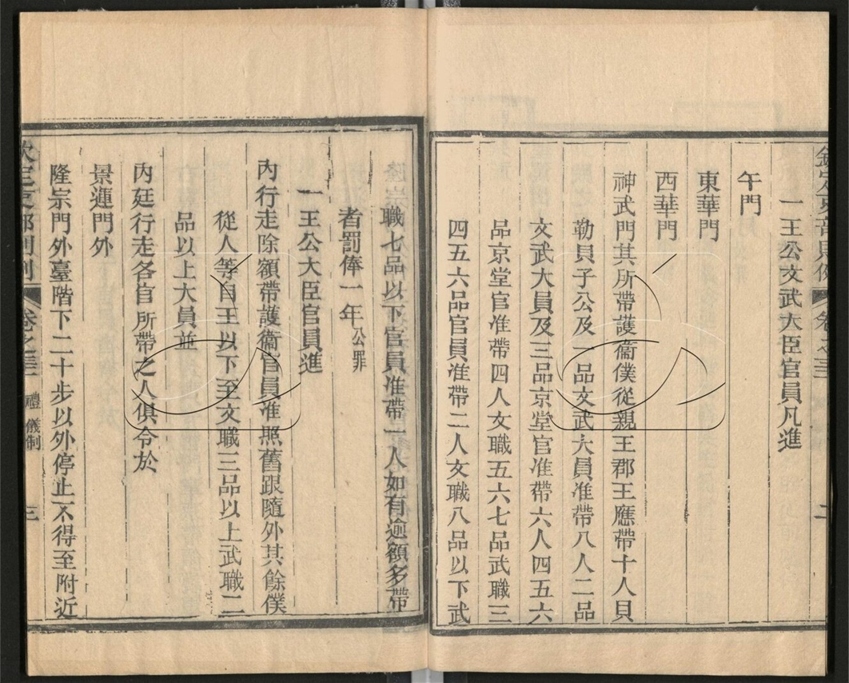 欽定吏部則例
卷之三
二
一王公文武大臣官員凡進
午門
東華門
西華門
神武門其所帶護衛僕從親王郡王應帶十人貝
勒貝子公及一品文武大員准帶八人二品
文武大員及三品京堂官准帶六人四五六
品京堂官准帶四人文職五六七品武職三
四五六品官員准帶二人文職八品以下武
職七品以下官員准帶一人如有逾額多帶
者罰俸一年公罪
一王公大臣官員進
內行走除額帶護衛官員准照舊跟隨外其餘僕
從人等自王以下至文職三品以上武職二
品以上大員並
內廷行走各官所帶之人俱令於
景運門外
隆宗門外臺階下二十步以外停止不得至附近
欽定吏部則例
卷之三
禮 儀制
三